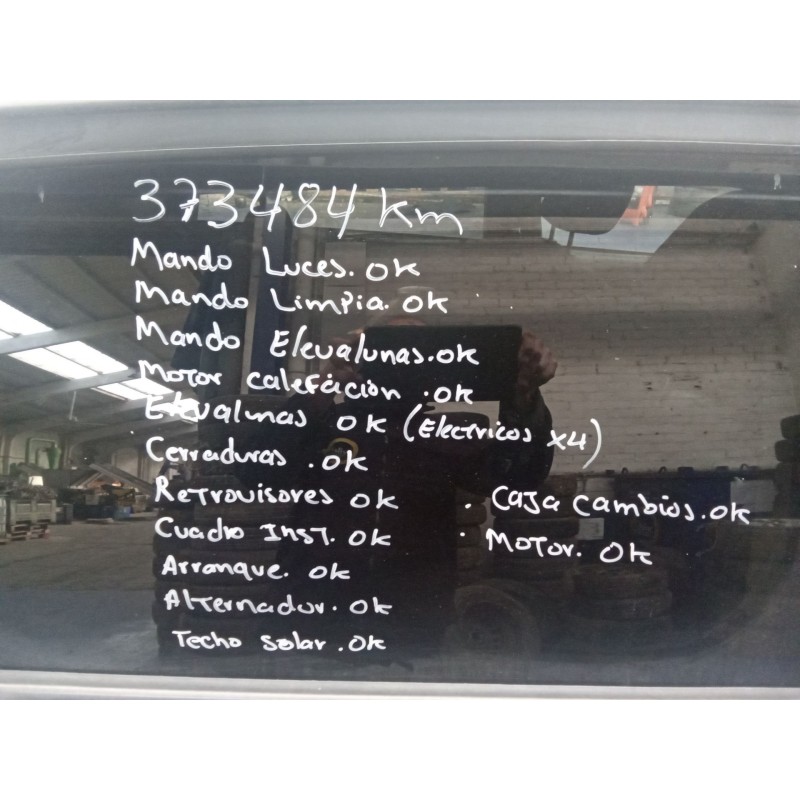 373484 Km
Mando Luces. OK
Mando Limpia. OK
Mando Elevalunas. OK
Motor calefación. OK
Elevalunas OK (Electricos x4)
Cerraduras. OK
Retrovisores OK
. Caja cambios. OK
Cuadro Inst. OK
. Motor. OK
Arranque. OK
Alternador. OK
Techo solar. OK